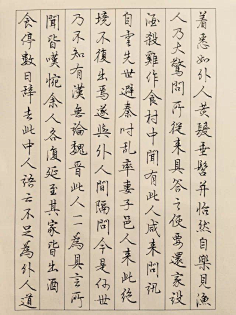 著悉如外人黄髮垂髫并怡然自樂見漁
人乃大驚問所從来具答之便要還家設
酒殺雞作食村中聞有此人咸来問訊
自雲先世避秦时亂率妻子邑人来此絶
境不復出焉遂與外人間隔問今是何世
乃不知有漢無論魏晉此人一一為具言所
聞皆嘆惋余人各復延至其家皆出酒
食停數日辭去此中人語云不足為外人道